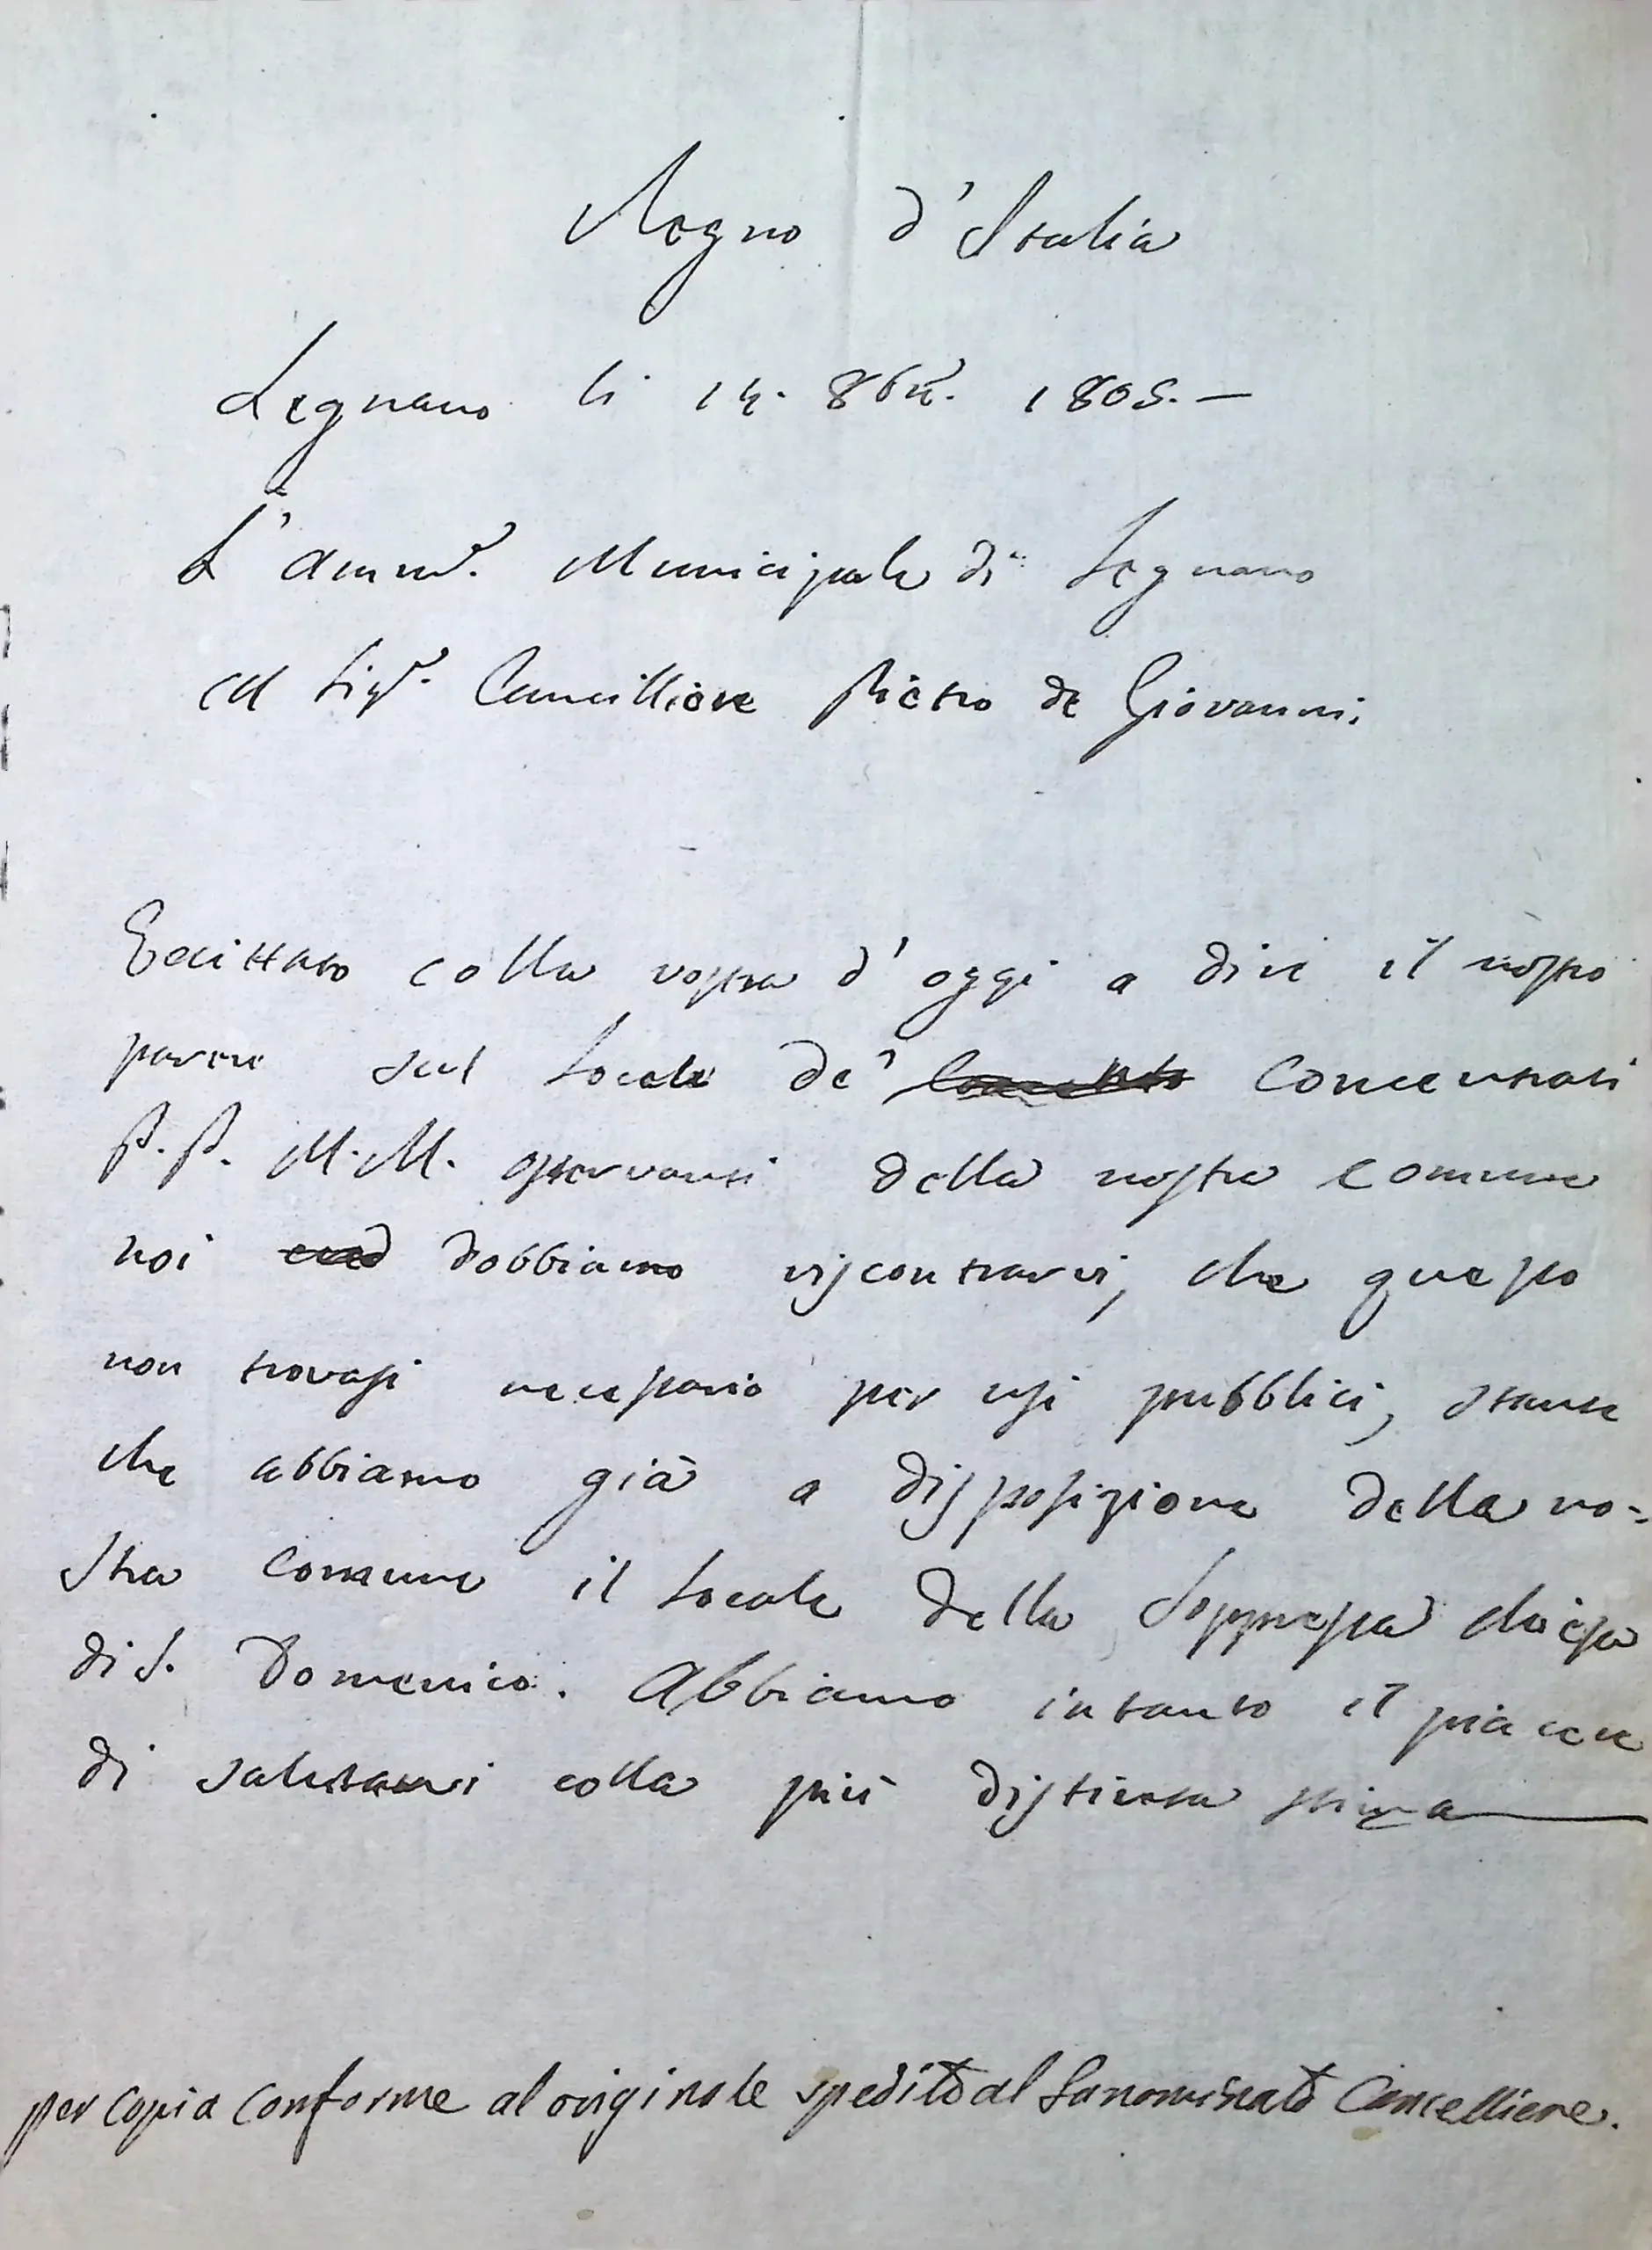 Regno d'Italia
Legnano li 14. 8bre. 1805.—
L'Ammne. Municipale di Legnano
Al Sigr. Cancilliere Pietro de Giovanni.
Eccittato colla vostra d'oggi a dire il nostro
parere sul Locale de' Concentrati
P.P. M.M. Osservanti della nostra Comune
noi dobbiamo riscontrarvi, che questo
non trovasi necessario per usi pubblici, stante
che abbiamo già a disposizione della no=
stra Comune il Locale della Soppressa chiesa
di S. Domenico. Abbiamo intanto il piacere
di salutarvi colla più distinta stima
per copia conforme al originale spedito al Sanominato Cancelliere.